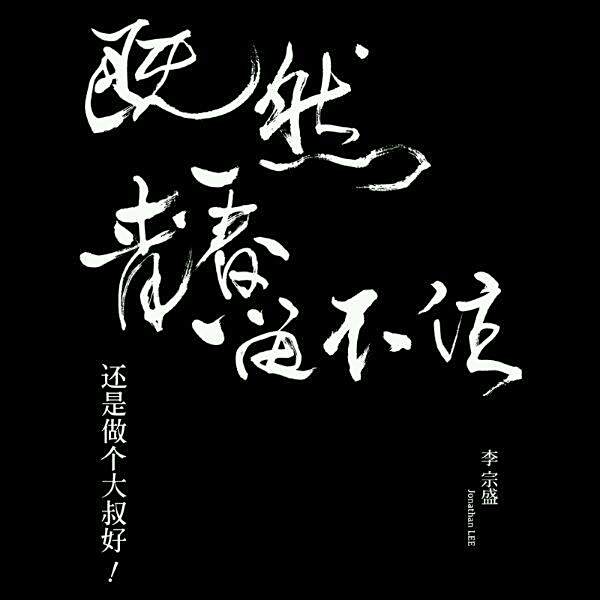 既然
青春留不住
还是做个大叔好！
李宗盛
Jonathan LEE